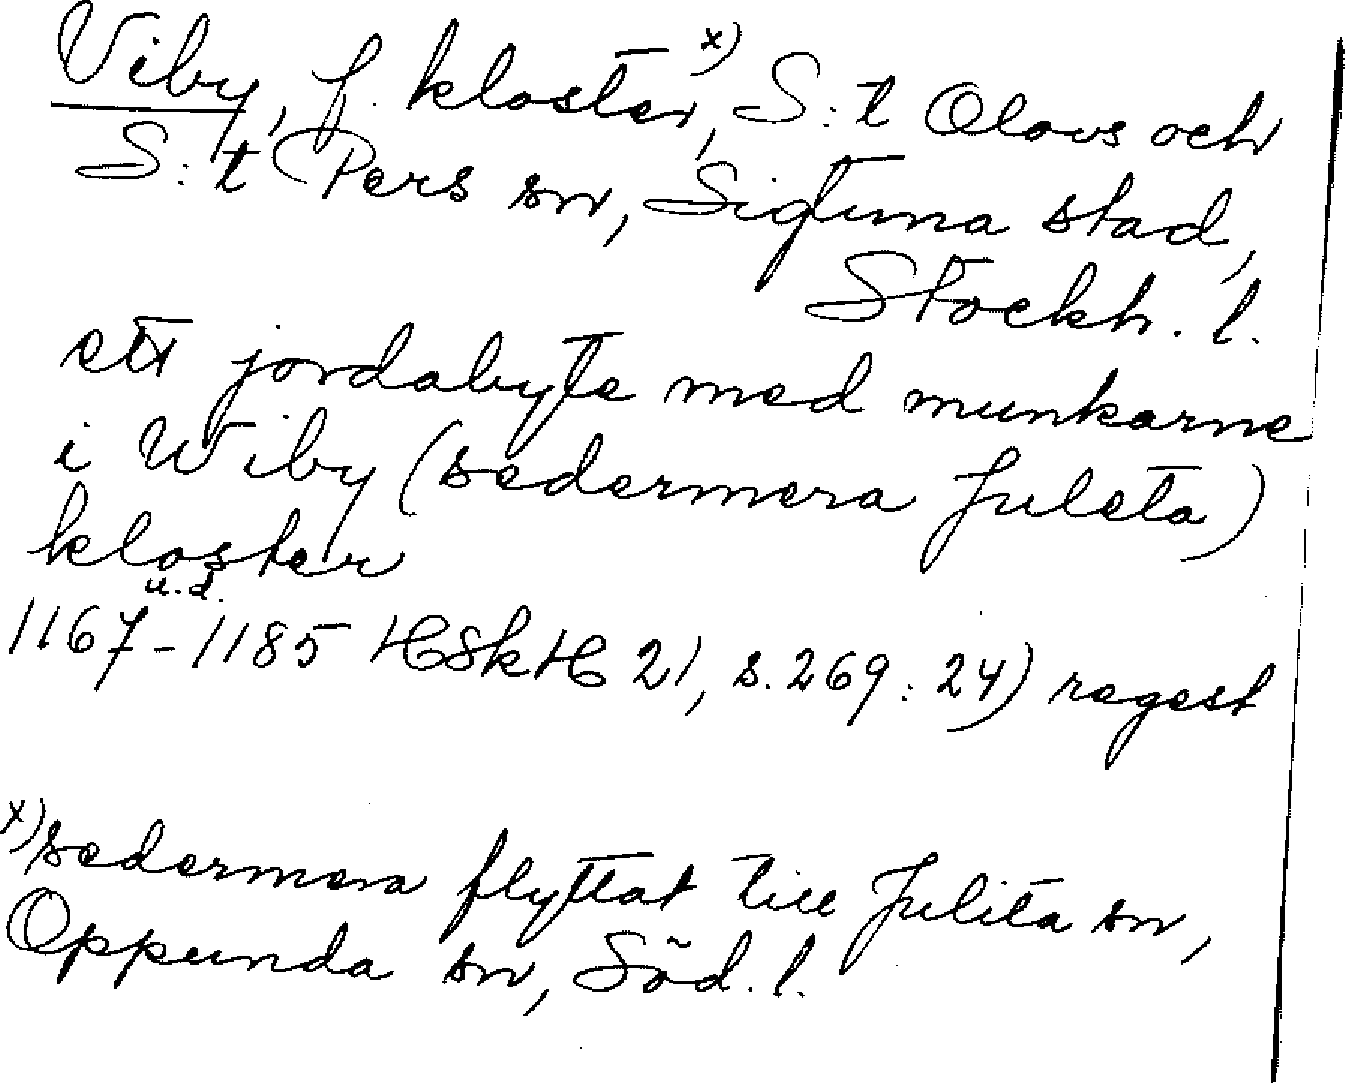 Viby, f. kloster,x) S:t Olovs och
S:t Pers sn, Sigtuna stad,
Stockh. l.
ett jordabyte med munkarne
i Wiby (sedermera Juleta)
kloster
u.d.
1167-1185 HSkH 21, s. 269: 24) regest
x) sedermera flyttat till Julita sn,
Oppunda sn, Söd. l.